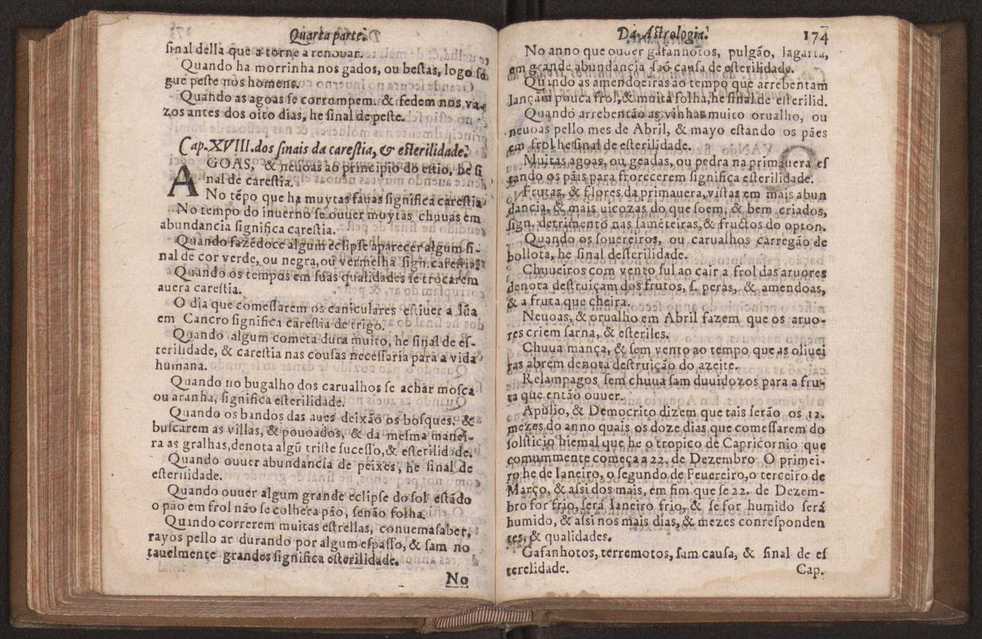 Quarta parte.
sinal della que a torne a renouar.
Quando ha morrinha nos gados, ou bestas, logo se
gue peste nos homens.
Quando as agoas se corrompem. & fedem nos va-
zos antes dos oito dias, he sinal de peste.
Cap. XVIII. dos sinais da carestia, & esterilidade.
AGOAS, & neuoas ao principio do estio, he si
nal de carestia.
No tẽpo que ha muytas fauas significa carestia
No tempo do inuerno se ouuer muytas chuuas em
abundancia significa carestia.
Quando fazẽdoce algum eclipse aparecer algum si-
nal de cor verde, ou negra, ou vermelha sign. carestia
Quando os tempos em suas qualidades se trocarem
auera carestia.
O dia que comessarem os caniculares estiuer a lũa
em Cancro significa carestia de trigo.
Quando algum cometa dura muito, he sinal de es-
terilidade, & carestia nas cousas necessaria para a vida
humana.
Quando no bugalho dos carualhos se achar mosca
ou aranha, significa esterilidade.
Quando os bandos das aues deixão os bosques. &
buscarem as villas, & pouoados, & da mesma manei-
ra as gralhas, denota algũ triste sucesso, & esterilidade.
Quando ouuer abundancia de peixes, he sinal de
esterilidade.
Quando ouuer algum grande eclipse do sol estãdo
o pão em frol não se colhera pão, senão folha.
Quando correrem muitas estrellas, conuem a saber,
rayos pello ar durando por algum espasso, & sam no
tauelmente grandes significa esterilidade.
No
Da Astrologia. 174
No anno que ouuer gafanhotos, pulgão, lagarta,
em grande abundancia são causa de esterilidade.
Quando as amendoeiras ao tempo que arrebentam
lançam pouca frol, & muita folha, he sinal de esterilid.
Quando arrebentão as vinhas muito orualho, ou
neuoas pello mes de Abril, & mayo estando os pães
em frol he sinal de esterilidade.
Muitas agoas, ou geadas, ou pedra na primauera es
tando os pãis para frorecerem significa esterilidade.
Frutas, & flores da primauera, vistas em mais abun
dancia, & mais uicozas do que soem, & bem criados,
sign. detrimento nas sameteiras, & fructos do opton.
Quando os souereiros, ou carualhos carregão de
bollota, he sinal desterilidade.
Chuueiros com vento sul ao cair a frol das aruores
denota destruiçam dos frutos, s. peras, & amendoas,
& a fruta que cheira.
Neuoas, & orualho em Abril fazem que os aruo-
res criem sarna, & esteriles.
Chuua mança, & sem vento ao tempo que as oliuei
ras abrem denota destruição do azeite.
Relampagos sem chuua sam duuidozos para a fru-
ta que então ouuer.
Apulio, & Democrito dizem que tais serão os 12.
mezes do anno quais os doze dias que comessarem do
solsticio hiemal que he o tropico de Capricornio que
comummente começa a 22. de Dezembro O primei-
ro he de Ianeiro, o segundo de Feuereiro, o terceiro de
Março, & assi dos mais, em fim que se 22. de Dezem-
bro for frio, será Ianeiro frio, & se for humido será
humido, & assi nos mais dias, & mezes corresponden
tes, & qualidades.
Gafanhotos, terremotos, sam causa, & sinal de es
terelidade.
Cap.